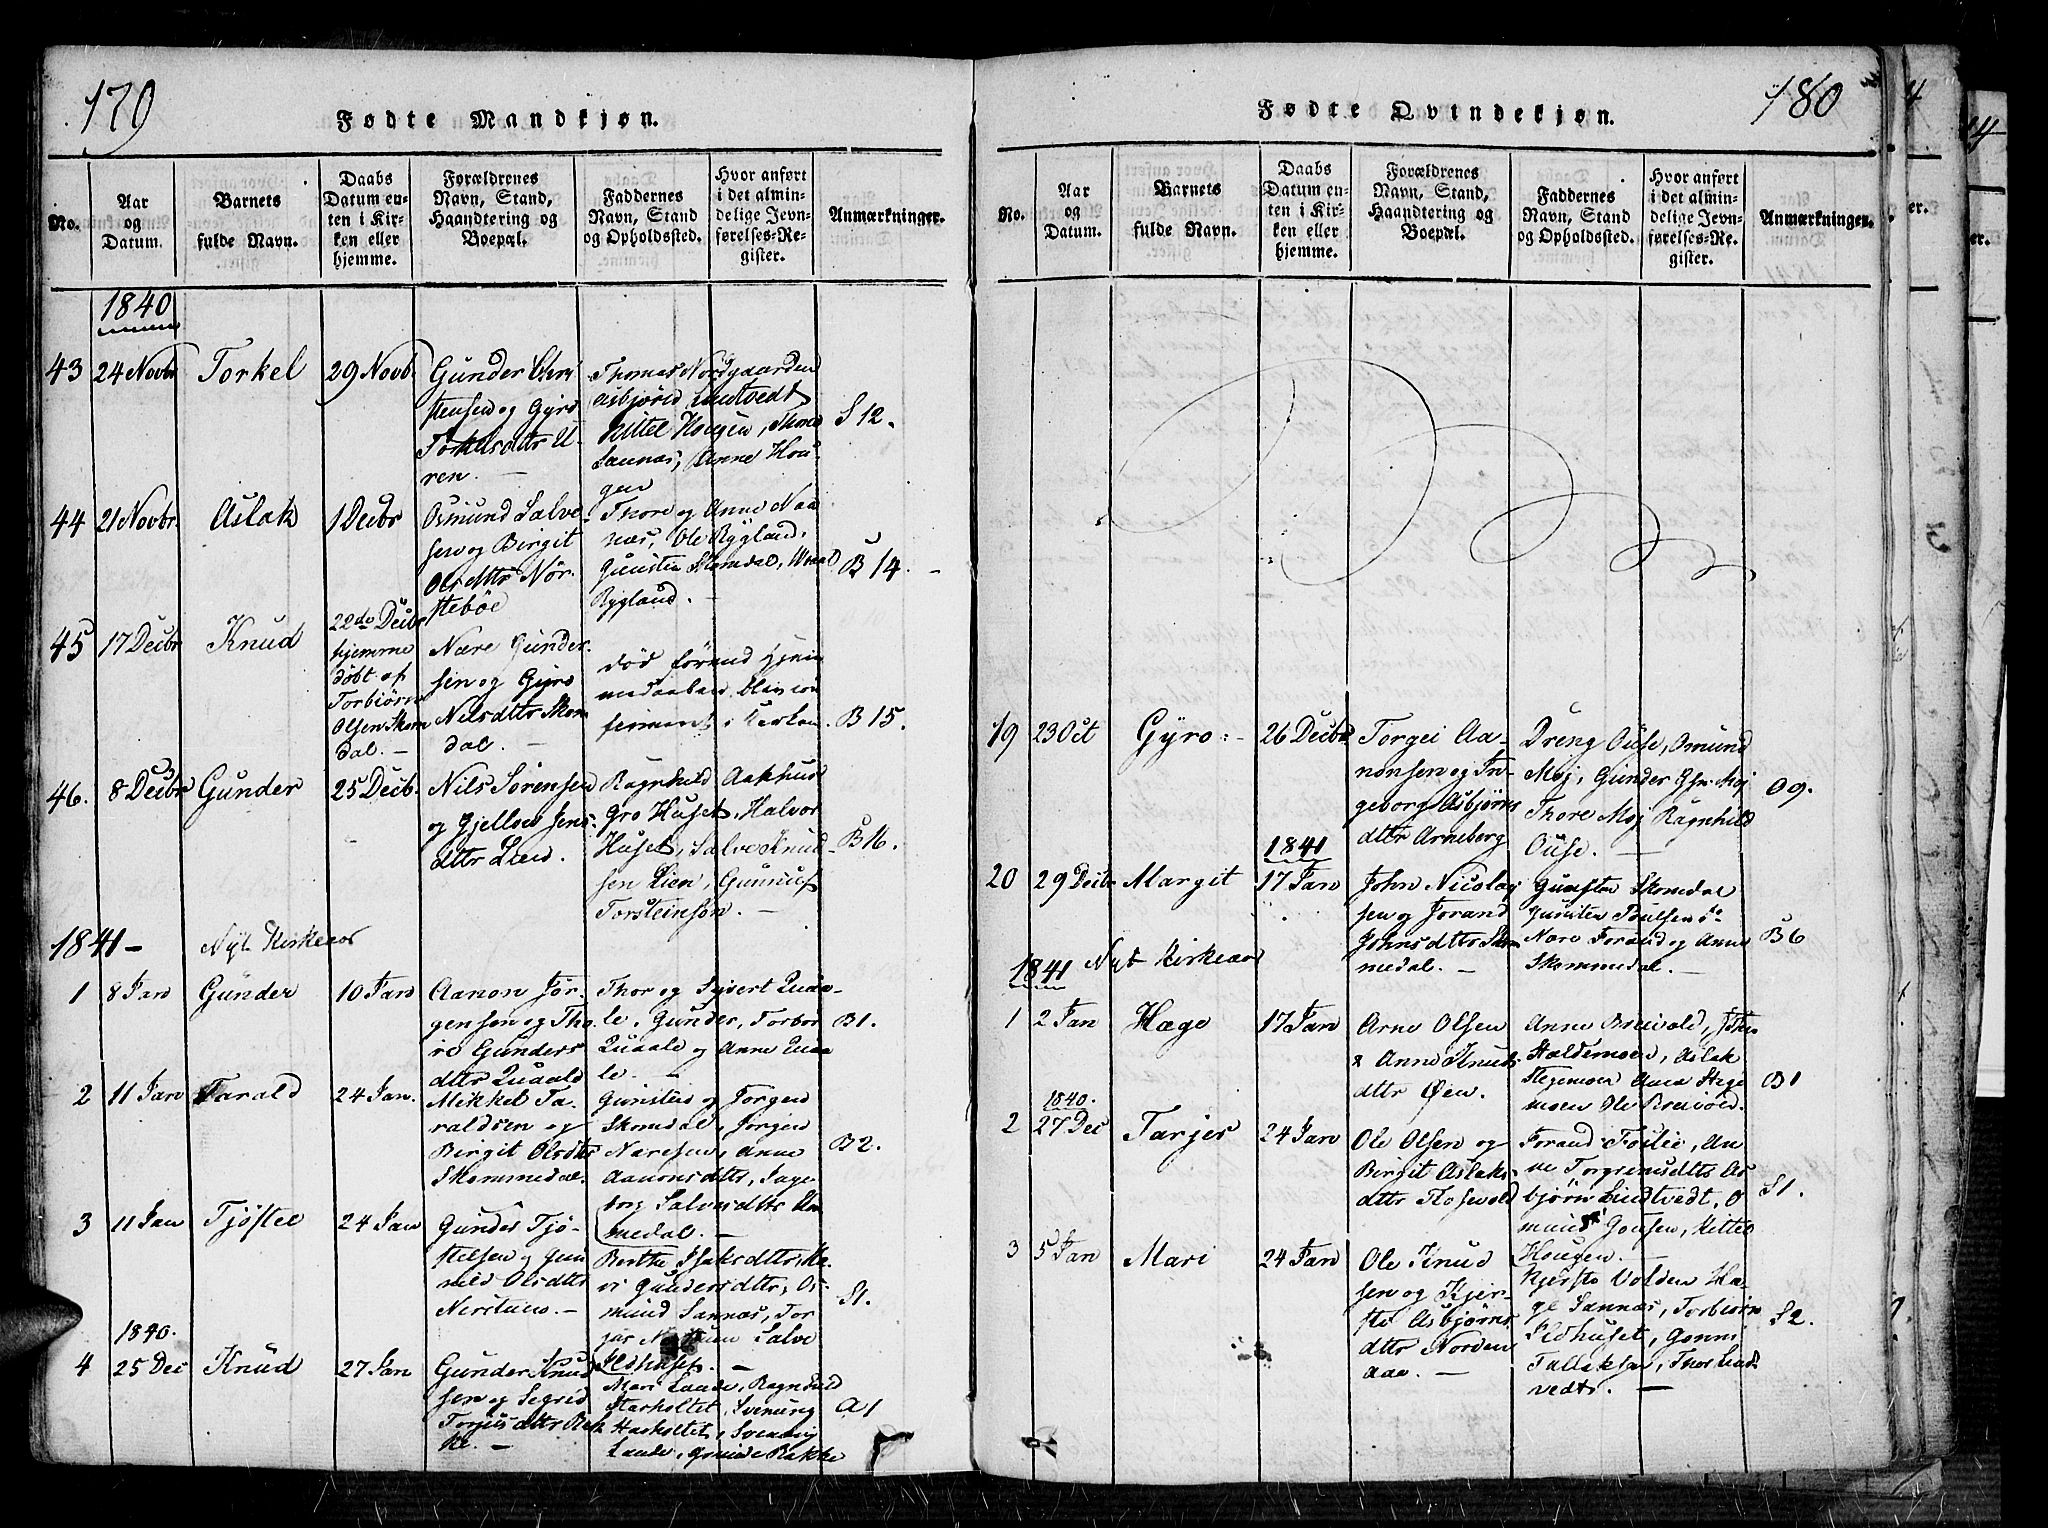 179
Fødte Mandkjøn.
No.
Aar
og
Datum.
Barnets
fulde Navn.
Daabs
Datum en-
ten i Kir-
ken eller
hjemme.
Forældrenes
Navn, Stand,
Haandtering og
Boepæl.
Faddernes
Navn, Stand
og Opholdssted.
Hvor anført
i det almin-
delige Jevn-
førelses-Re-
gister.
Anmærkninger.
1840
43 24 Novbr Torkel 29 Novb.
Gunder Chri
stensen og Gyro
U-
ren. -
Thomas Nordgaarden
Asbjörn Lindtvedt
Kittel Hougen, Thone
Sannæs, Anne Hou-
gen
S 12.
44 21 Novbr. Aslak 1 Decbr
Osmund Salve-
sen og Birgit
Olsdttr Nör-
steböe
Thore og Anne Naa
næs, Ole Rygland,
Gunsten Skomdal,
Rygland. -
B 14. -
45 17 Decbr Knud
22de Decbr
hjemme
döbt af
Torbiörn
Olsen Skom
dal. -
Nære Gunder-
sen og Gyro
Nilsdttr Skom
dal. -
död förend Hjem
medaaben blev con
firmeret i Kirken.
B 15.
46. 8 Decbr Gunder 25 Decb.
Nils Sörensen
og Gjellou Jens-
dttr Lien.
Ragnhild Aakhus
Gro Huset, Halvor
Huset, Salve Knud-
sen Lien, Gunnuf
Torsteinsön. -
B 16.
1841 - Nyt Kirkeaar
1 8 Jan Gunder 10 Jan
Aanon Jör-
gensen og Tho-
re Gunders
dttr Quaale
Thor og Sijvert Quaa-
le, Gunder, Torbor
Quaale og Anne Quaa
le. -
B 1.
2 11 Jan Tarald 24 Jan.
Mikkel Ta-
raldsen og
Birgit Olsdttr
Skommedal.
Gunsteid og Jorgen
Skomdal, Jörgen
Naresen, Anne
Aanonsdttr, Inge
borg Salvesdttr Skom
medal. -
B 2.
3 11 Jan Tjöstel 24 Jan
Gunder Tjö-
stelsen og Gun
nild Olsdttr
-
Berthe Isaksdttr, Ka-
ri Gundersdttr, Os-
mund Sannæs, Tor
jus Salve
Ildhuset. -
S1.
1840.
4 25 Dec Knud 27 Jan
Gunder Knud
sen og Segrid
Torjusdttr Rak
ke. -
Mari Laude, Ragnhild
Harholtet, Svenung
Harholtet, Svenung
Laude, Rakke
A 1
180
Fødte Qvindekjøn.
No.
Aar
og
Datum.
Barnets
fulde Navn.
Daabs
Datum en-
ten i Kir-
ken eller
hjemme.
Forældrenes
Navn, Stand,
Haandtering og
Boepæl.
Faddernes
Navn, Stand
og Opholdssted.
Hvor anført
i det almin-
delige Jevn-
førelses-Re-
gister.
Anmærkninger.
19 23 Oct Gyro 26 Decbr
Torgei Aa-
nonsen og In-
geborg Asbjörns
dttr Arneberg
Dreng Ouse, Osmund
Moj, Gunder Moj
Thore Moj Ragnhild
Ouse. -
O 9.
1841
20 29 Decbr Margit 17 Jan
John Nicolaj
sen og Jorand
Johnsdttr Skom
medal. -
Gunsten Skomdal
Gunsten Poulsen
Nare Jorand og Anne
Skommedal. -
B 6
1841 Nyt Kirkeaar
1 2 Jan Hæge 17 Jan
Arne Olsen
& Anne Knuds
dttr Øen.
Anne Breivold,
Haldemoen, Aslak
Stegemoen Anna Stege
moen Ole Breivold.
B 1
1840.
2 27 Dec Tarjer 24 Jan
Ole Olsen og
Birgit Aslaks-
dttr Flosevold
Jorand An
ne As
björn Lindtvedt, O
mund Jonsen, Kittel
Hougen. -
S1.
3 5 Jan Mari 24 Jan
Ole Knud
sen og Kjer-
ste Asbjörns
dttr Norden
aae. -
Kjerste Volden Hæ-
ge Sannæs, Torbiörn
Ildhuset, Gonne
Tallaksen, Thor Lind
vedt. -
S2.